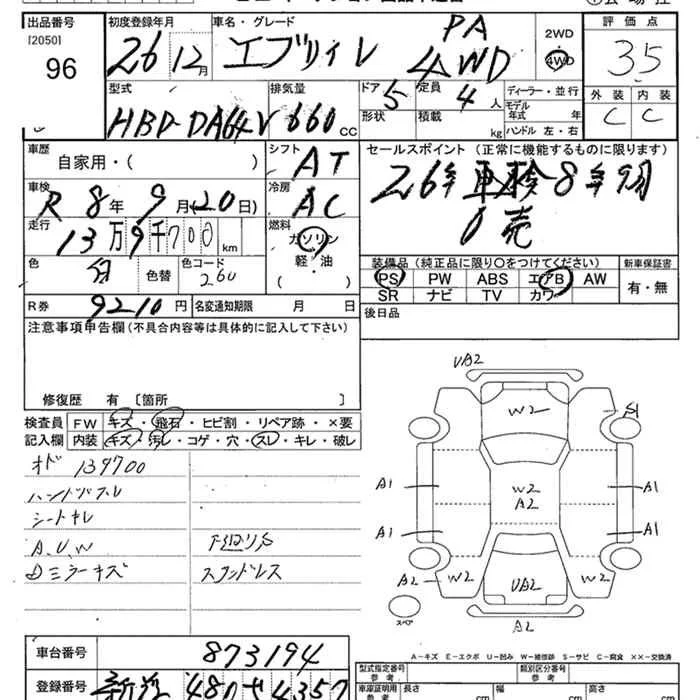 出品番号
[2050]
96
初度登録年月
26 12月
車名・グレード
エブリイレ PA
4WD
2WD
4WD
評価点
3.5
外装 内装
C C
型式
HBD-DA64V
排気量
660 CC
ドア
5
形状
定員
4 人
積載
kg
ディーラー・並行
モデル
年式 年
ハンドル 左・右
車歴
自家用・( )
シフト
AT
セールスポイント (正常に機能するものに限ります)
26年 車検8年9月
車検
R 8年 9月(20日)
冷房
AC
走行
13万9千700 km
燃料
ガソリン
軽・油
( )
色
色替
色コード
260
R券
9210円
名変通知期限 月 日
装備品 (純正品に限り○をつけてください)
PS PW ABS エアB AW
SR ナビ TV カワ
新車保証書
有・無
後日品
注意事項申告欄(不具合内容等は具体的に記入して下さい)
修復歴 有 〔箇所 〕
検査員
記入欄
FW キズ・飛石・ヒビ割・リペア跡・×要
内装 キズ・汚レ・コゲ・穴・スレ・キレ・破レ
オド 139700
ハンドブル
シートキレ
A.U.W
Dミラーキズ
下廻りS
スタッドレス
UA2
W2
S1
A1
W2
A2
A1
A1
A1
A2
W2
UA2
W2
A2
スペア
A−キズ E−エクボ U−凹み W−補修跡 S−サビ C−腐食 ××−交換済
車台番号
873194
登録番号
480
4357
型式指定番号
参考
類別区分番号
参考
車庫証明用
参考
長さ
cm
幅
cm
高さ
cm